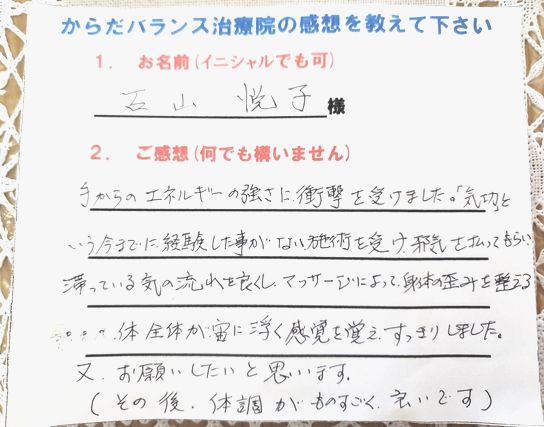 からだバランス治療院の感想を教えて下さい
1. お名前(イニシャルでも可)
石山 悦子 様
2. ご感想(何でも構いません)
手からのエネルギーの強さに、衝撃を受けました。「気功」と
いう今までに、経験した事がない施術を受け、邪気を払ってもらい
滞っている気の流れを良くし、マッサージによって、身体の歪みを整える
体全体が宙に浮く感覚を覚え、すっきりしました。
又、お願いしたいと思います。
(その後、体調がものすごく、良いです)